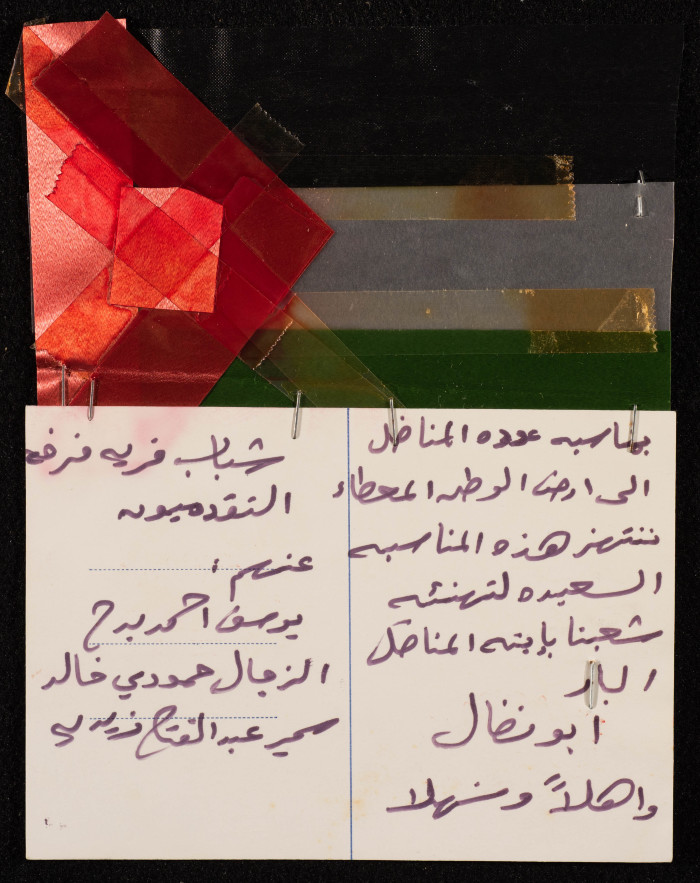 بمناسبه عوده المناضل
الى ارض الوطن المعطاء
ننتهز هذه المناسبه
السعيده لتهنئه
شعبنا بإبنه المناضل
البار
ابو نضال
واهلاً وسهلا
شباب قريه
التقدميون
عنهم:
يوسف احمد
الزجال حمودي خالد
سمير عبد الفتاح